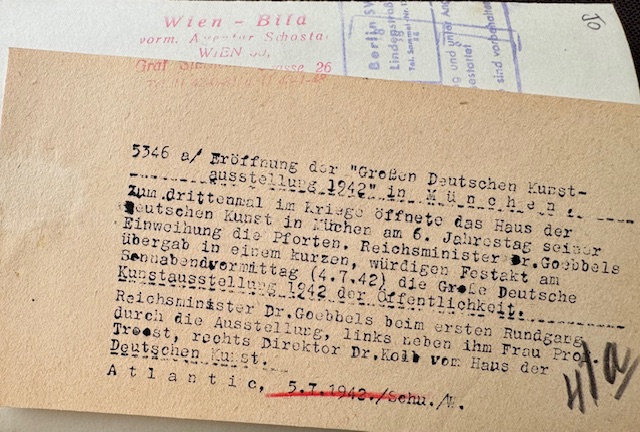 Wien - Bild
vorm. Schosta
WIEN
Graf 26
Berlin SW
Lindenstraß
sind vorbehalten
5346 a/ Eröffnung der "Großen Deutschen Kunst-
ausstellung 1942" in M ü n c h e n .
Zum drittenmal im Kriege öffnete das Haus der
Deutschen Kunst in Müchen am 6. Jahrestag seiner
Einweihung die Pforten. Reichsminister Dr.Goebbels
übergab in einem kurzen, würdigen Festakt am
Sonnabendvormittag (4.7.42) die Große Deutsche
Kunstausstellung 1942 der Öffentlichkeit.
Reichsminister Dr.Goebbels beim ersten Rundgang
durch die Ausstellung, links neben ihm Frau Prof.
Troost, rechts Direktor Dr.Kolb vom Haus der
Deutschen Kunst.
A t l a n t i c, 5.7.1942./Schu./W.